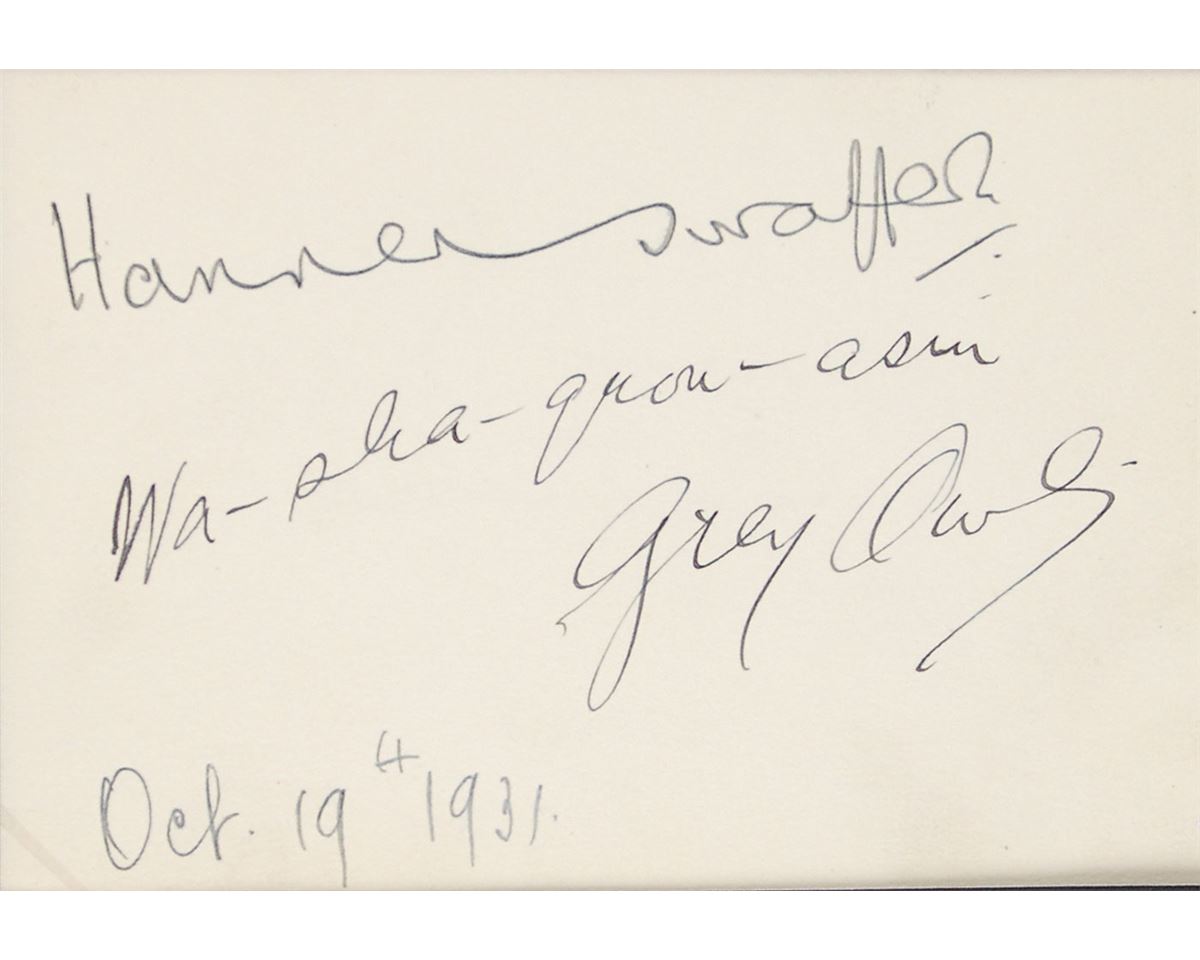 Hannen Swaffer
Wa-sha-quon-asin
Grey Owl
Oct. 19th 1931.